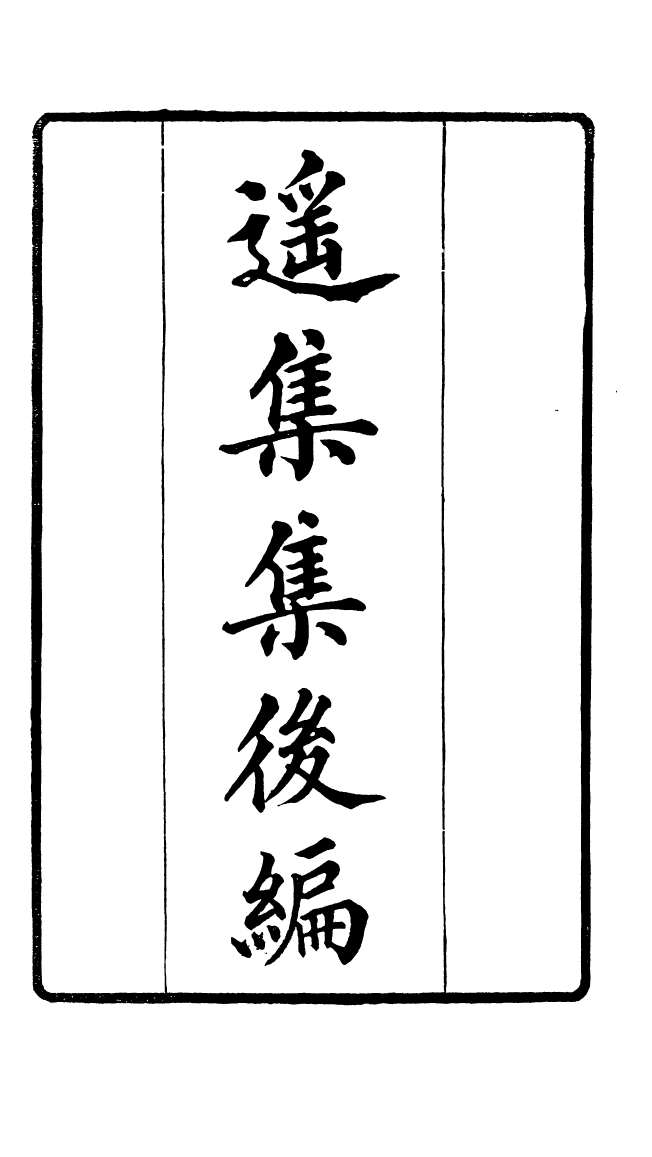 遥集集後編